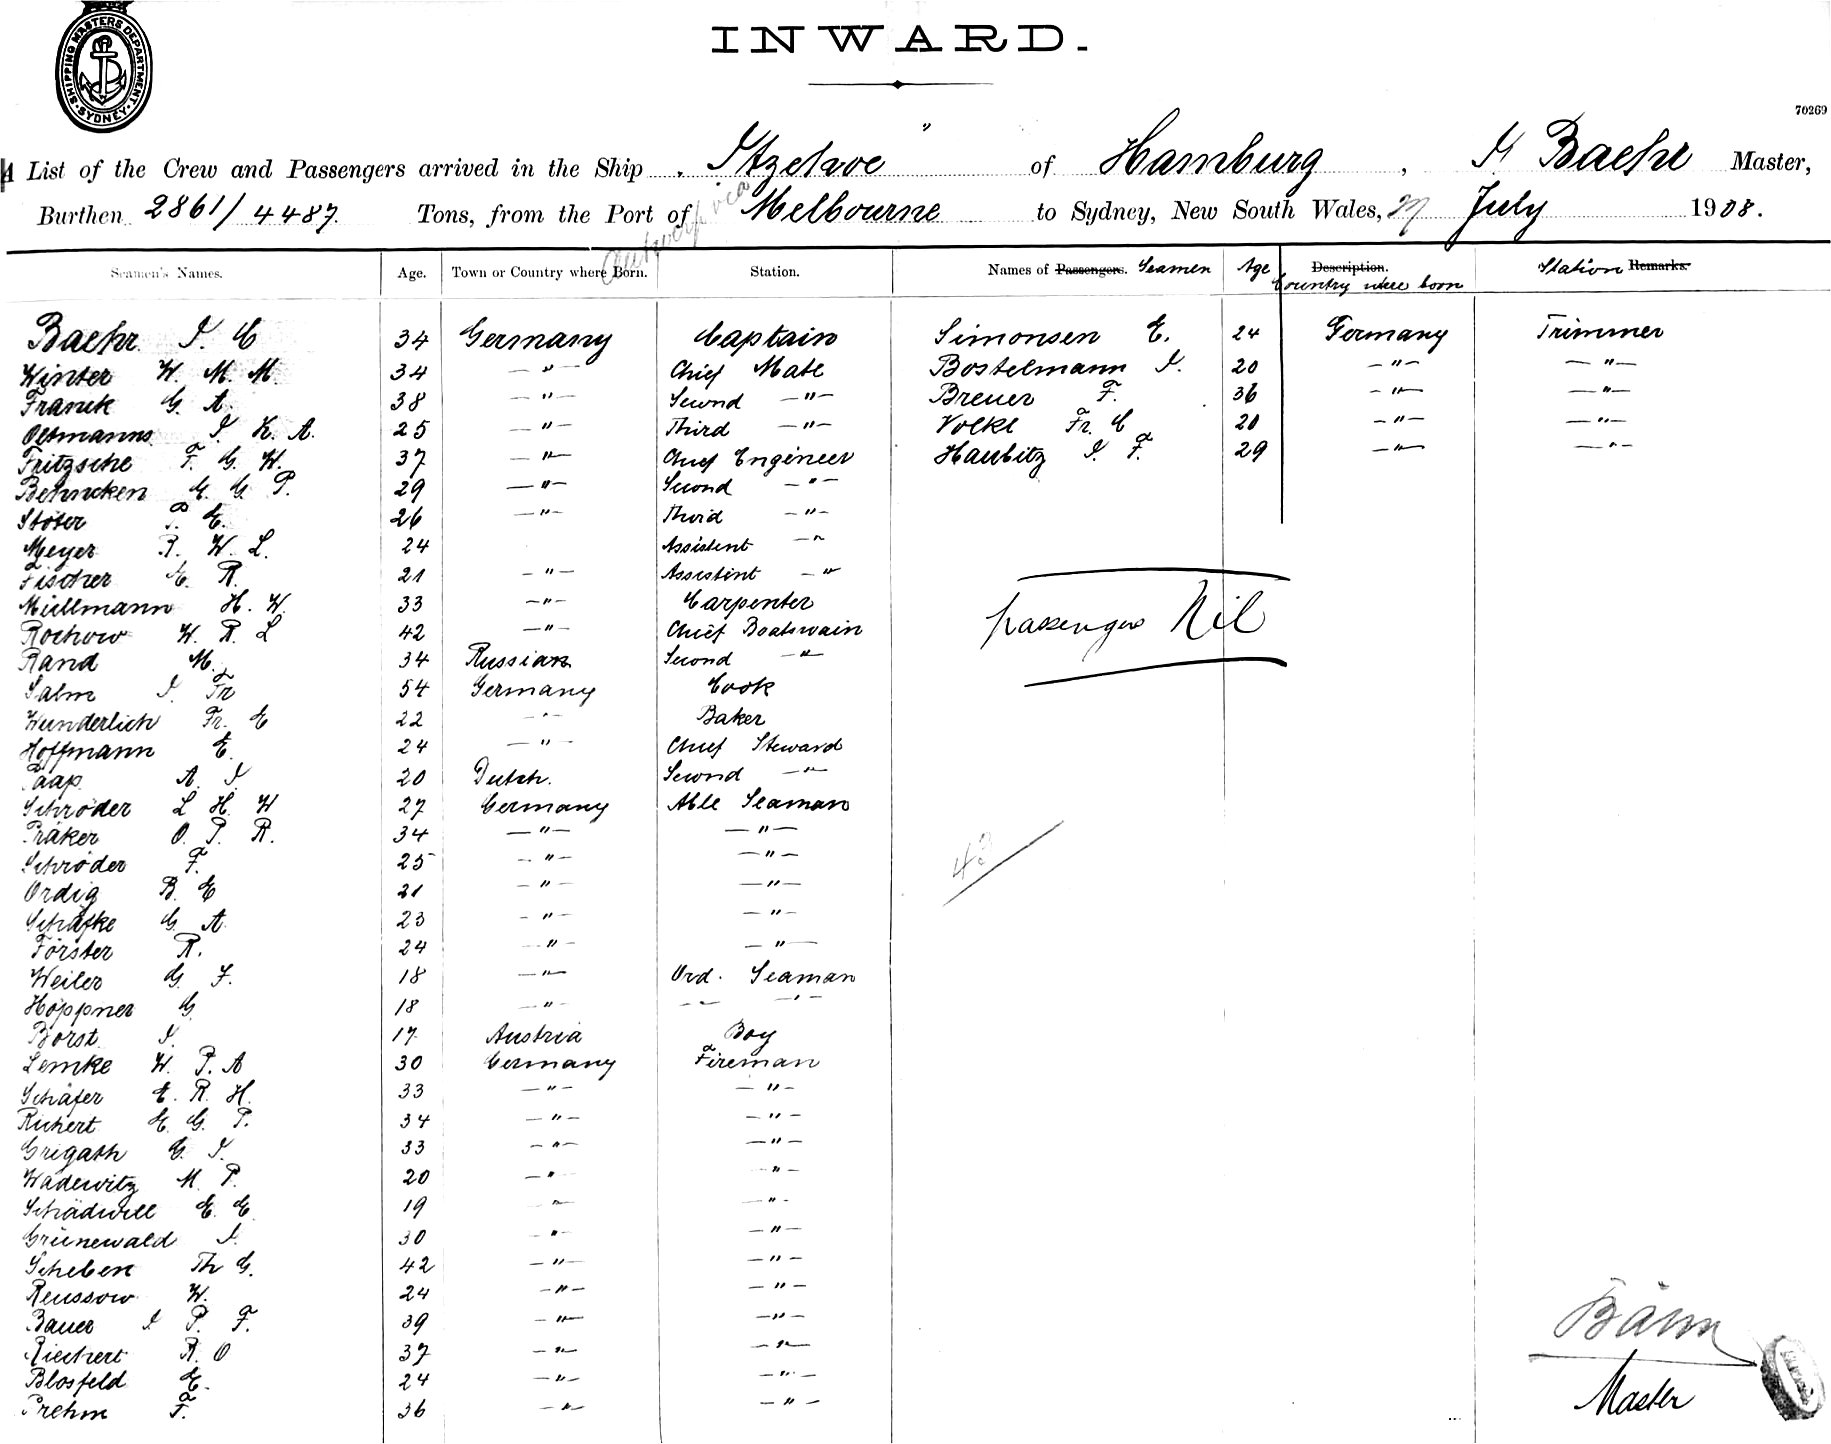 SHIPPING MASTERS DEPARTMENT. SYDNEY
INWARD.
70269
A List of the Crew and Passengers arrived in the Ship Itzehoe of Hamburg, I Baehr Master,
Burthen 2861/4487. Tons, from the Port of Antwerp via Melbourne to Sydney, New South Wales, 27 July 1908.
Seamen's Names. Age. Town or Country where Born. Station. Names of Passengers. Seamen Age Description. Country where born Station Remarks.
Baehr I. C 34 Germany Captain Simonsen E. 24 Germany Trimmer
Winter W. M. M. 34 —"— Chief Mate Bostelmann I. 20 —"— —"—
Franck G A. 38 —"— Second —"— Breuer F. 36 —"— —"—
Oltmanns I. H. A. 25 —"— Third —"— Volkl Fr. C 20 —"— —"—
Fritzsche F. G. W. 37 —"— Chief Engineer Haubitz I. F. 29 —"— —"—
Behncken E. G. P. 29 —"— Second —"—
Stöter P. E. 26 —"— Third —"—
Meyer R. W. L. 24 Assistent —"
Fischer E. R. 21 —"— Assistent —"
Müllmann H. W. 33 —"— Carpenter
Rochow W. R. L 42 —"— Chief Boatswain
Rand M. 34 Russian Second —"
passengers Nil
Salm I. Fr 54 Germany Cook
Wunderlich Fr. E 22 —"— Baker
Hoffmann E. 24 —"— Chief Steward
Paap A. I 20 Dutch. Second —"
Schröder L H. W 27 Germany Able Seaman
Präker O. P. R. 34 —"— —"—
Schröder F. 25 —"— —"—
43
Ordig B. E 21 —"— —"—
Schäfke G A. 23 —"— —"—
Förster R. 24 —"— —"—
Weiler G. F. 18 —"— Ord. Seaman
Höppner G. 18 —"— —"— —"—
Borst I. 17. Austria Boy
Lemke W. P. A 30 Germany Fireman
Schäfer E. R. H. 33 —"— —"—
Richert E. G. P. 34 —"— —"—
Grigath G. I. 33 —"— —"—
Wadewitz M. P. 20 —"— —"—
Schädwill E. E. 19 —"— —"—
Grünewald I. 30 —"— —"—
Scheben Th G. 42 —"— —"—
Reussow W. 24 —"— —"—
Bauer I P. F. 39 —"— —"—
Riechert R. O 37 —"— —"—
Blosfeld E. 24 —"— —"—
Prehm F. 36 —"— —"—
Master